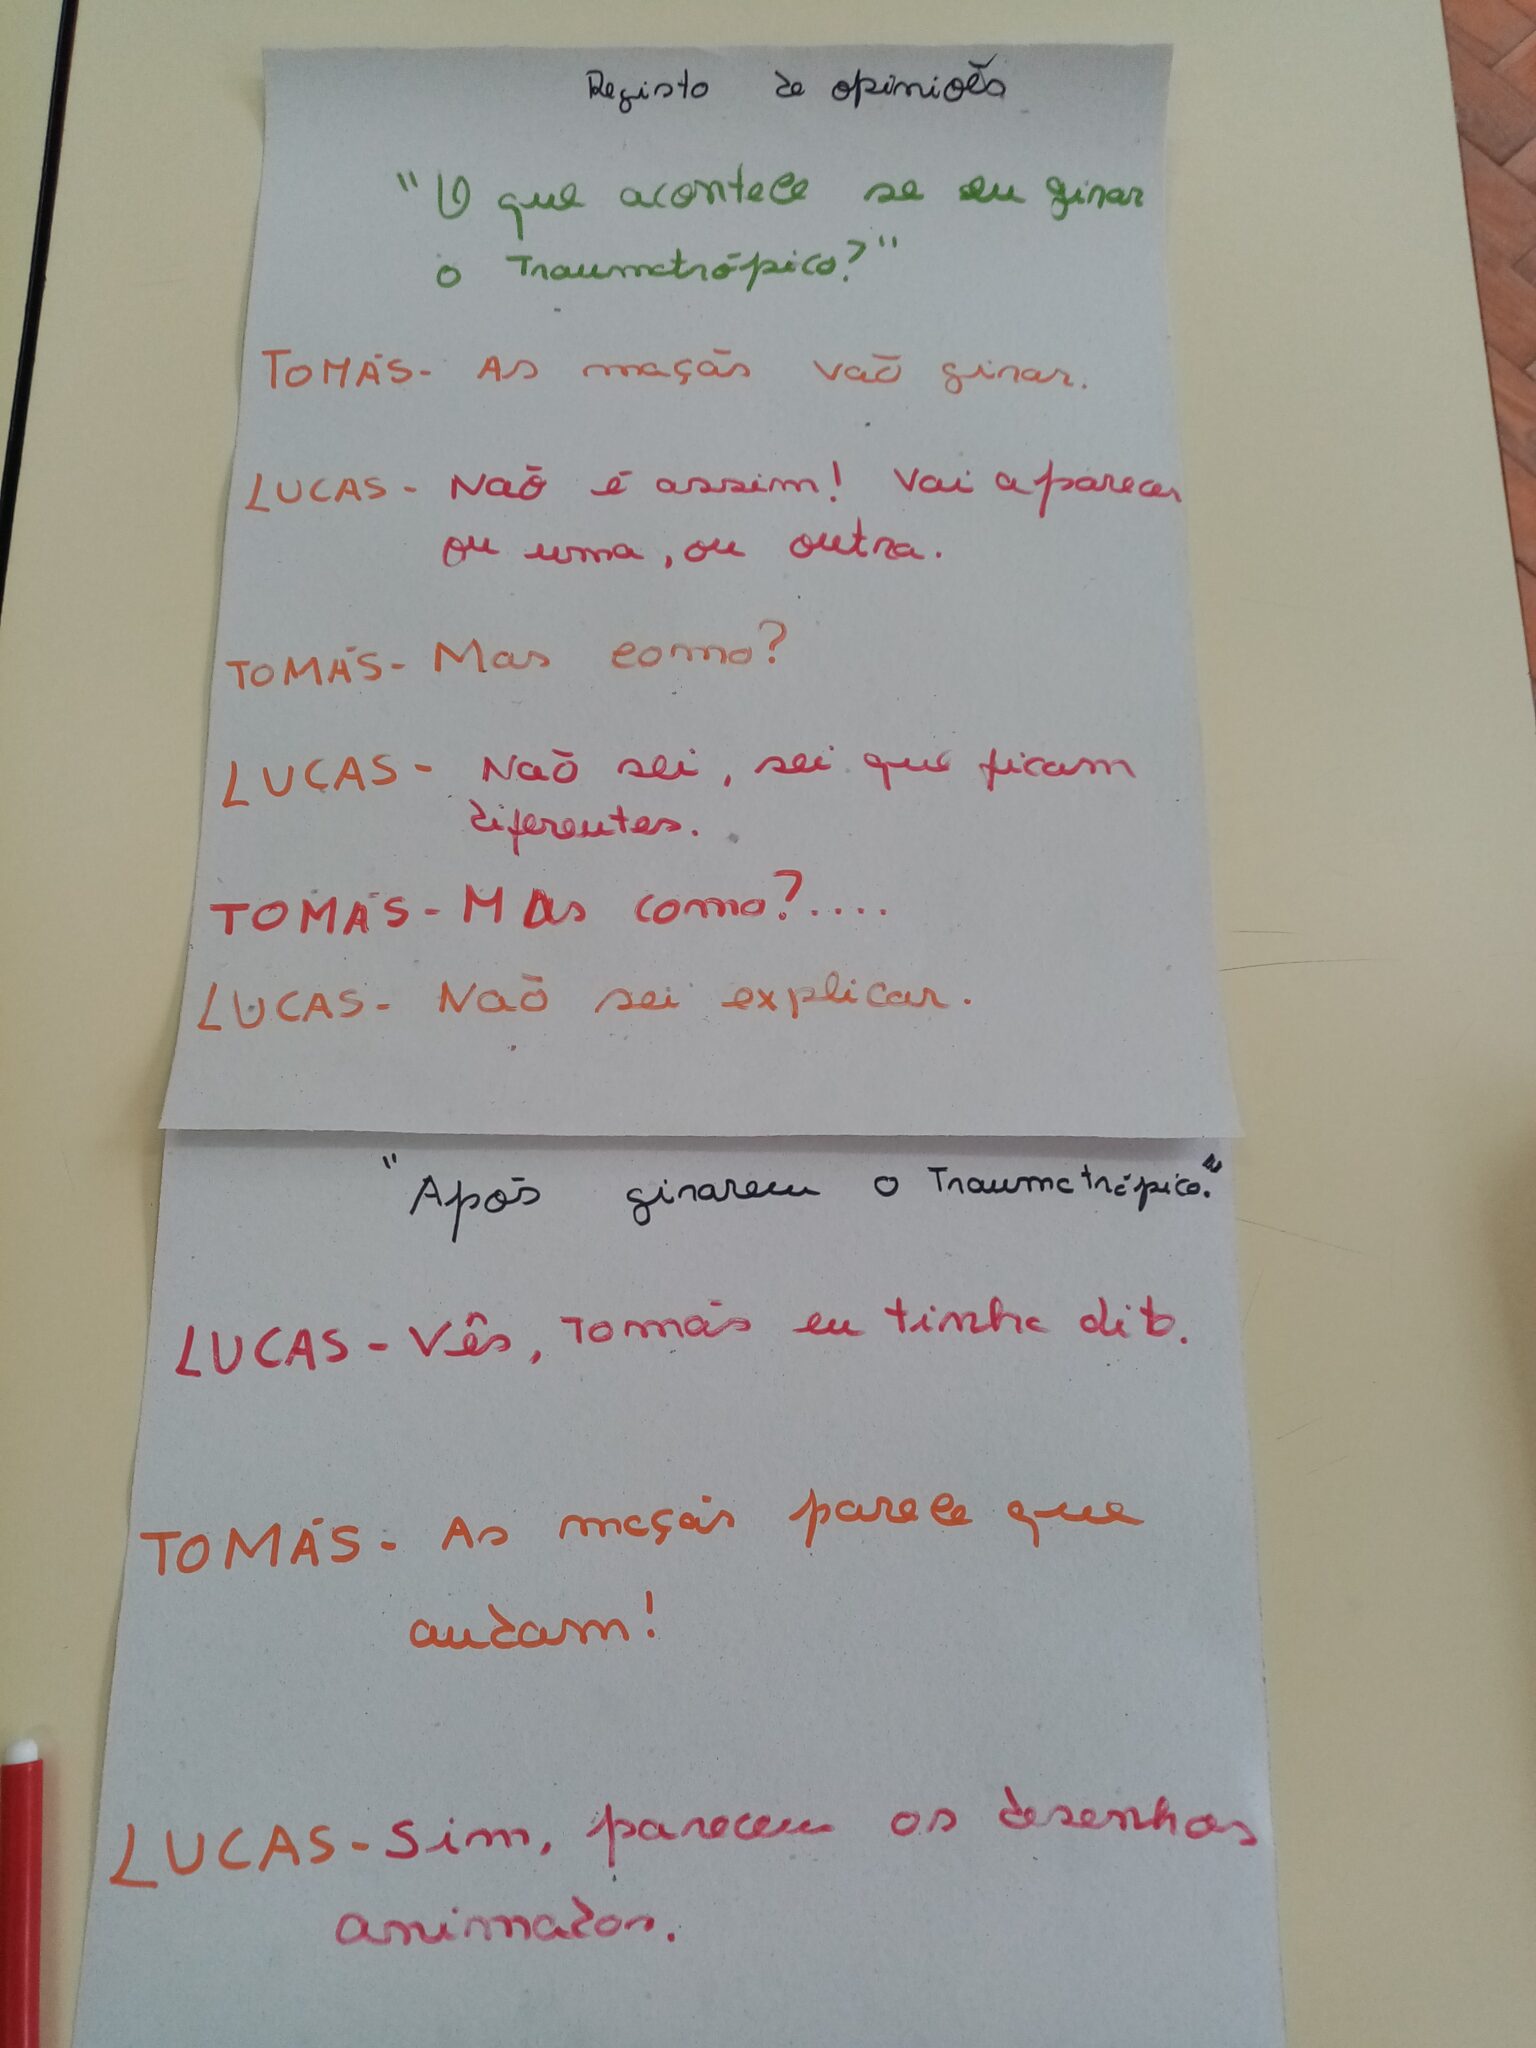 Registo de opiniões
"O que acontece se eu girar
o Traumatrópico?"
TOMÁS- As maçãs vão girar.
LUCAS- Não é assim! Vai aparecer
ou uma, ou outra.
TOMÁS- Mas como?
LUCAS- Não sei, sei que ficam
diferentes.
TOMÁS- MAs como?....
LUCAS- Não sei explicar.
"Após girarem o Traumatrópico."
LUCAS- Vês, Tomás eu tinha dito.
TOMÁS- As maçãs parece que
andam!
LUCAS- Sim, parecem os desenhos
animados.